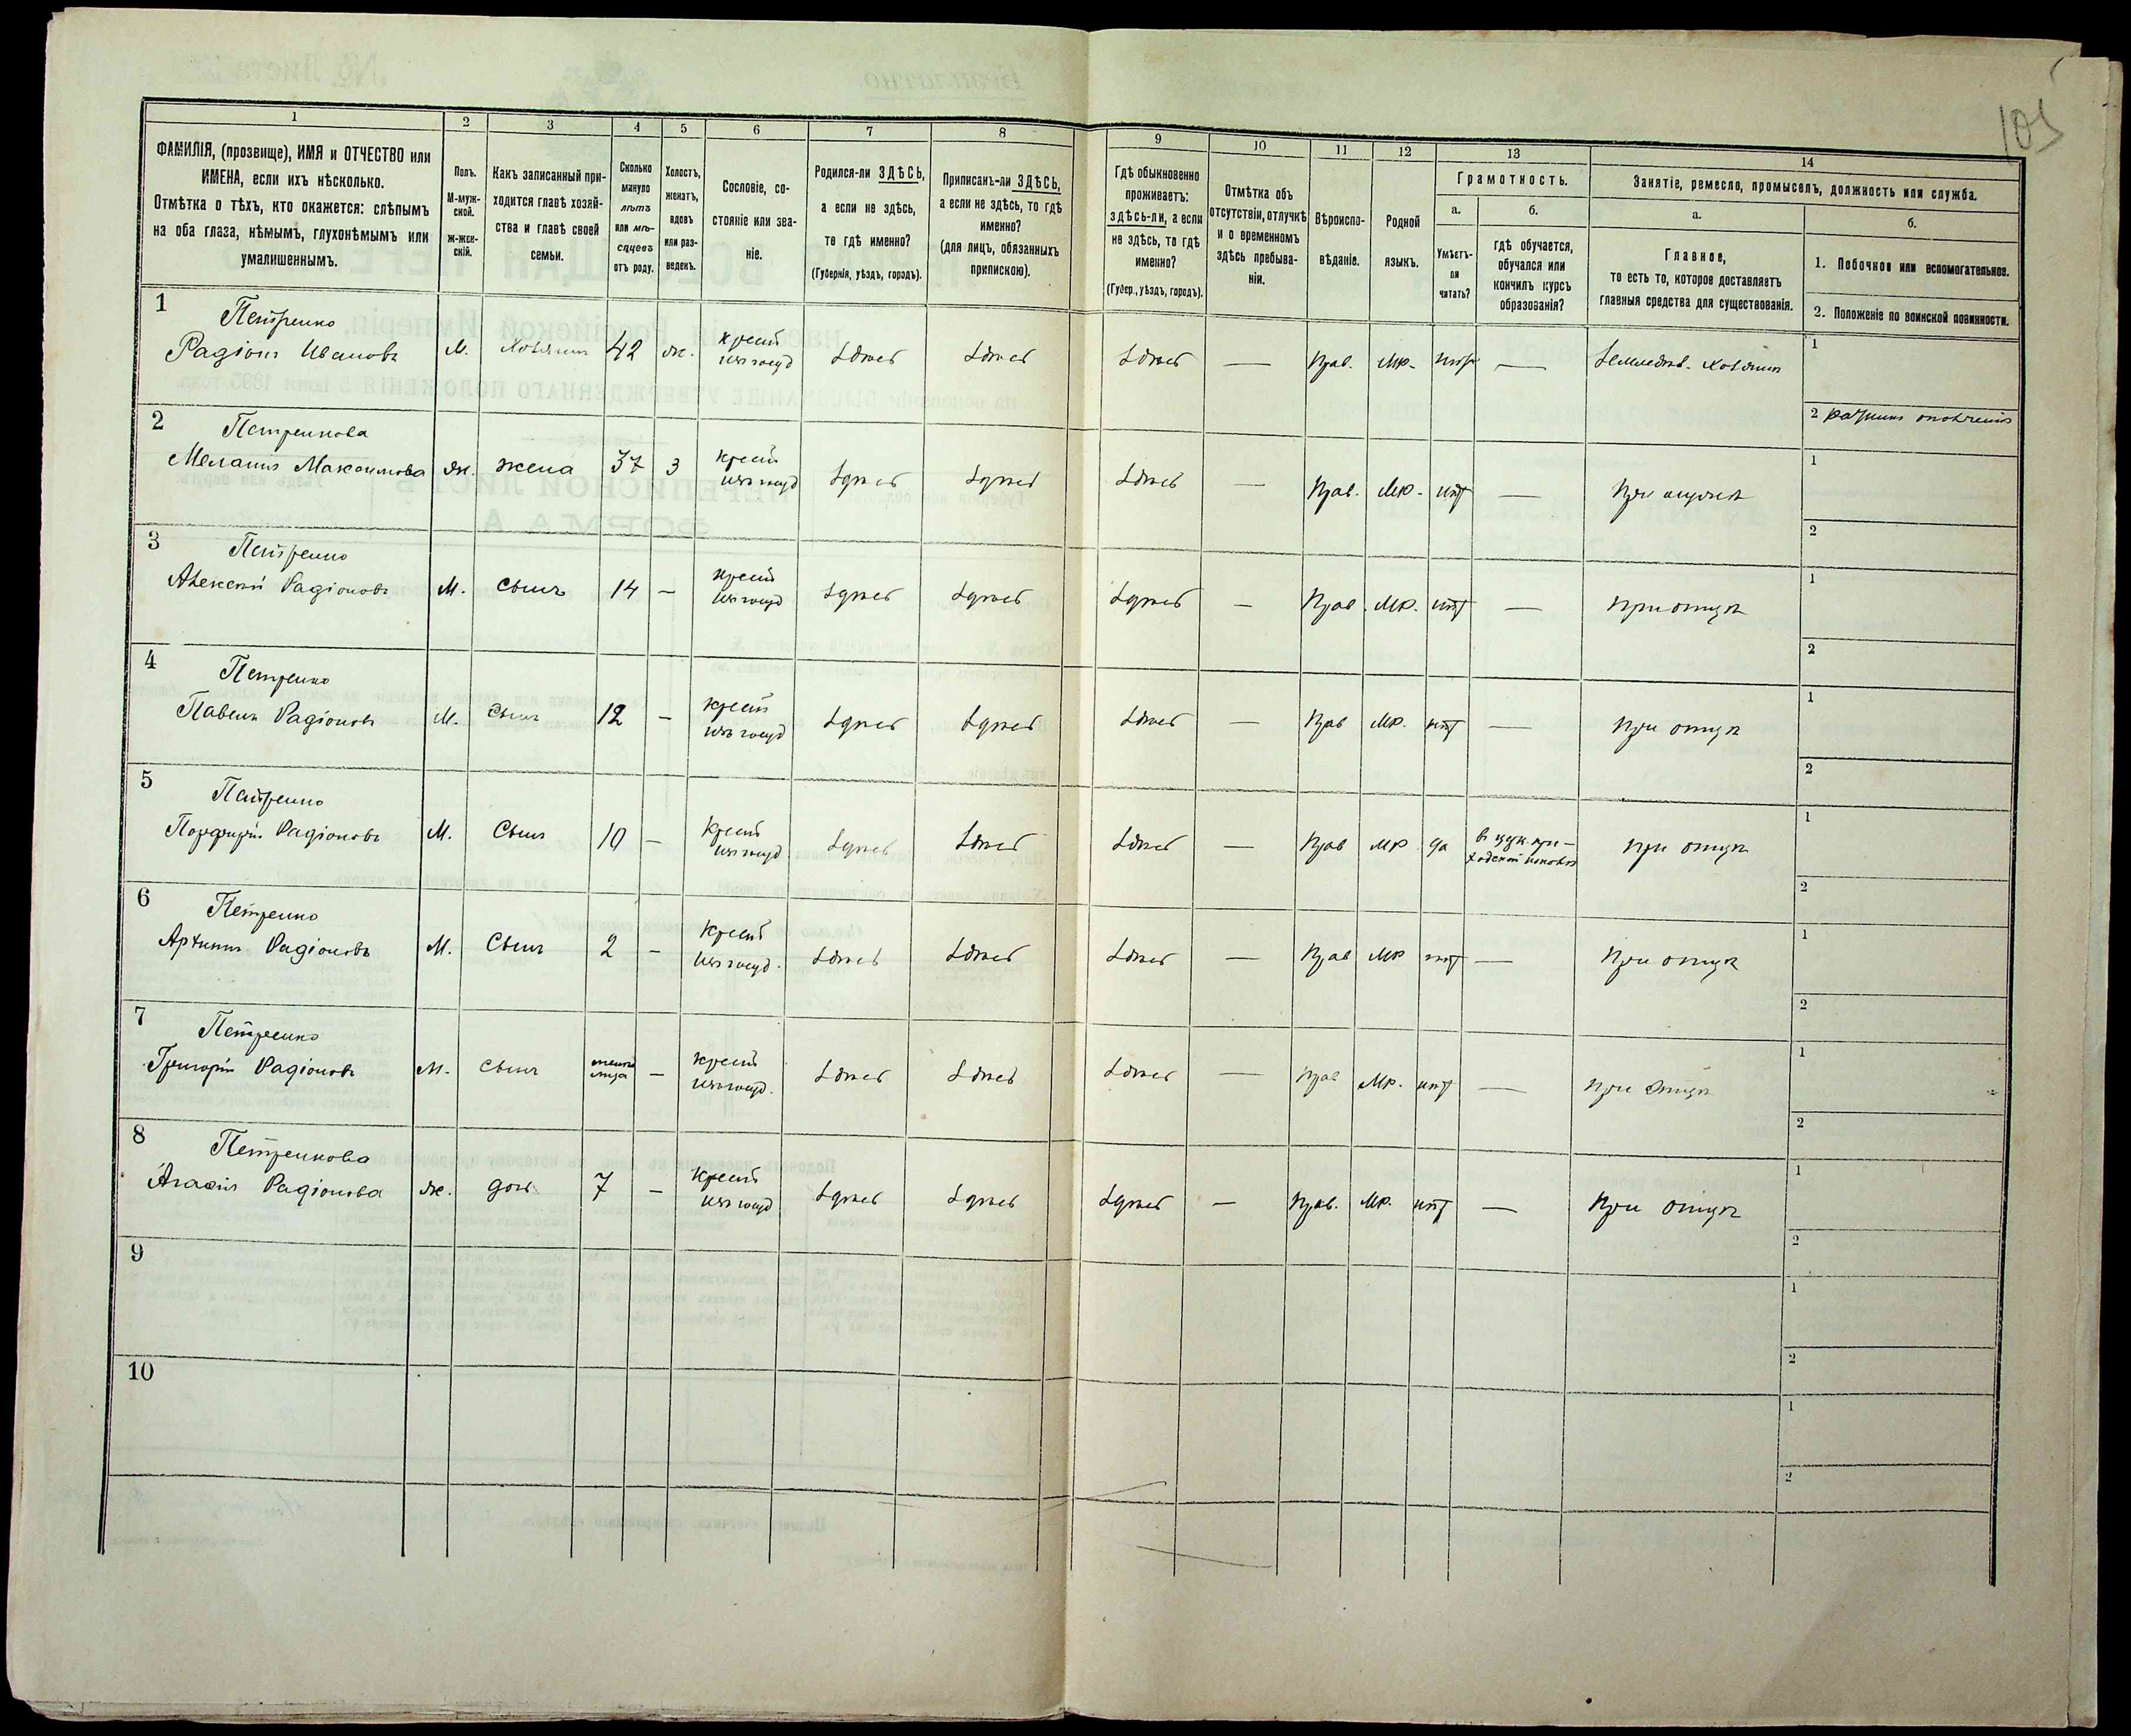 105
1 2 3 4 5 6 7 8 9 10 11 12 13 14
ФАМИЛІЯ, (прозвище), ИМЯ и ОТЧЕСТВО или
ИМЕНА, если ихъ нѣсколько.
Отмѣтка о тѣхъ, кто окажется: слѣпымъ
на оба глаза, нѣмымъ, глухонѣмымъ или
умалишеннымъ.
Полъ.
М-муж-
ской.
Ж-жен-
скій.
Какъ записанный при-
ходится главѣ хозяй-
ства и главѣ своей
семьи.
Сколько
минуло
лѣтъ
или мѣ-
сяцевъ
отъ роду.
Холостъ,
женатъ,
вдовъ
или раз-
веденъ.
Сословіе, со-
стояніе или зва-
ніе.
Родился-ли ЗДѢСЬ,
а если не здѣсь,
то гдѣ именно?
(Губернія, уѣздъ, городъ).
Приписанъ-ли ЗДѢСЬ,
а если не здѣсь, то гдѣ
именно?
(для лицъ, обязанныхъ
припискою).
Гдѣ обыкновенно
проживаетъ:
здѣсь-ли, а если
не здѣсь, то гдѣ
именно?
(Губер., уѣздъ, городъ).
Отмѣтка объ
отсутствіи, отлучкѣ
и о временномъ
здѣсь пребыва-
ніи.
Вѣроиспо-
вѣданіе.
Родной
языкъ.
Грамотность.
а.
Умѣетъ-
ли
читать?
б.
гдѣ обучается,
обучался или
кончилъ курсъ
образованія?
Занятіе, ремесло, промыселъ, должность или служба.
а.
Главное,
то есть то, которое доставляетъ
главныя средства для существованія.
б.
1. Побочное или вспомогательное.
2. Положеніе по воинской повинности.
1 Петренко
Радіонъ Ивановъ М. Хозяинъ 42 ж. крест изъ госуд здѣсь здѣсь здѣсь — Прав. Мр. нѣтъ — Земледѣл. Хозяинъ 1
2 ратникъ ополченія
2 Петренкова
Меланія Максимова Ж. жена 37 З крест изъ госуд здѣсь здѣсь здѣсь — Прав. Мр. нѣтъ — При мужѣ 1
2
3 Петренко
Алексѣй Радіоновъ М. Сынъ 14 — крест изъ госуд здѣсь здѣсь здѣсь — Прав. Мр. нѣтъ — при отцѣ 1
2
4 Петренко
Павелъ Радіоновъ М. Сынъ 12 — крест изъ госуд здѣсь здѣсь здѣсь — Прав Мр. нѣт — при отцѣ 1
2
5 Петренко
Порфирій Радіоновъ М. Сынъ 10 — крест изъ госуд здѣсь здѣсь здѣсь — Прав Мр да въ церк. при-
ходской школѣ при отцѣ 1
2
6 Петренко
Радіоновъ М. Сынъ 2 — крест изъ госуд. здѣсь здѣсь здѣсь — Прав Мр нѣт — При отцѣ 1
2
7 Петренко
Григорій Радіоновъ М. Сынъ — крест изъ госуд. здѣсь здѣсь здѣсь — Прав Мр. нѣт — при отцѣ 1
2
8 Петренкова
Агафія Радіонова Ж. дочь 7 — крест изъ госуд здѣсь здѣсь здѣсь — Прав. Мр. нѣт — При отцѣ 1
2
9 1
2
10 1
2